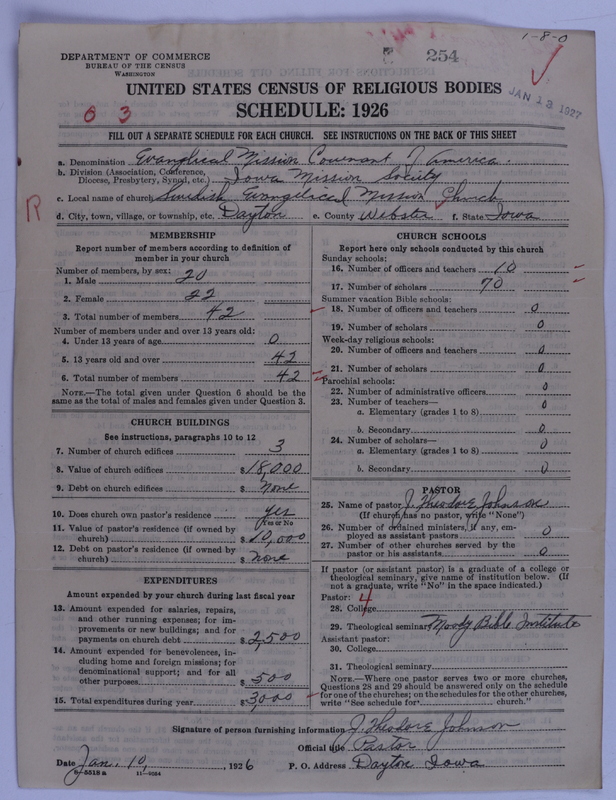 1-8-0
254
DEPARTMENT OF COMMERCE
BUREAU OF THE CENSUS
WASHINGTON
JAN 13 1927
UNITED STATES CENSUS OF RELIGIOUS BODIES
SCHEDULE: 1926
6 3
FILL OUT A SEPARATE SCHEDULE FOR EACH CHURCH. SEE INSTRUCTIONS ON THE BACK OF THIS SHEET
a. Denomination Evanglical Mission Covenant of America.
b. Division (Association, Conference, Diocese, Presbytery, Synod, etc.) Iowa Mission Society
R
c. Local name of church Swedish Evangelical Mission Church
d. City, town, village, or township, etc. Dayton e. County Webster f. State Iowa
MEMBERSHIP
Report number of members according to definition of member in your church
Number of members, by sex:
1. Male 20
2. Female 22
3. Total number of members 42
Number of members under and over 13 years old:
4. Under 13 years of age 0
5. 13 years old and over 42
6. Total number of members 42
NOTE.—The total given under Question 6 should be the same as the total of males and females given under Question 3.
CHURCH BUILDINGS
See instructions, paragraphs 10 to 12
7. Number of church edifices 3
8. Value of church edifices $18,000
9. Debt on church edifices $ none
10. Does church own pastor's residence? yes
(Yes or No)
11. Value of pastor's residence (if owned by church) $10,000
12. Debt on pastor's residence (if owned by church) $ none
EXPENDITURES
Amount expended by your church during last fiscal year
13. Amount expended for salaries, repairs, and other running expenses; for improvements or new buildings; and for payments on church debt $2,500
14. Amount expended for benevolences, including home and foreign missions; for denominational support; and for all other purposes $ 500
15. Total expenditures during year $3,000
CHURCH SCHOOLS
Report here only schools conducted by this church
Sunday schools:
16. Number of officers and teachers 10
17. Number of scholars 70
Summer vacation Bible schools:
18. Number of officers and teachers 0
19. Number of scholars 0
Week-day religious schools:
20. Number of officers and teachers 0
21. Number of scholars 0
Parochial schools:
22. Number of administrative officers 0
23. Number of teachers—
a. Elementary (grades 1 to 8) 0
b. Secondary 0
24. Number of scholars—
a. Elementary (grades 1 to 8) 0
b. Secondary 0
PASTOR
25. Name of pastor J. Theodore Johnson
(If church has no pastor, write "None")
26. Number of ordained ministers, if any, employed as assistant pastors 0
27. Number of other churches served by the pastor or his assistants 0
If pastor (or assistant pastor) is a graduate of a college or theological seminary, give name of institution below. (If not a graduate, write "No" in the space indicated.)
Pastor: 4
28. College
29. Theological seminary Moody Bible Institute
Assistant pastor:
30. College
31. Theological seminary
NOTE.—Where one pastor serves two or more churches, Questions 28 and 29 should be answered only on the schedule for one of the churches; on the schedules for the other churches, write "See schedule for church."
Signature of person furnishing information J. Theodore Johnson
Official title Pastor
Date Jan. 10, , 1926 P. O. Address Dayton Iowa
8-5518 a 11-9584